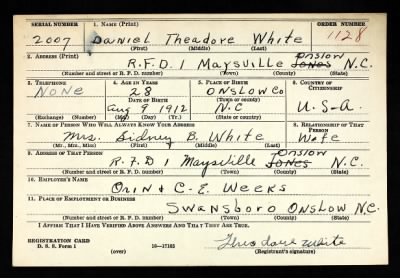 SERIAL NUMBER 1. NAME (Print) ORDER NUMBER
2007 Daniel Theadore White 1128
(First) (Middle) (Last)
2. ADDRESS (Print)
R.F.D 1 Maysville Jones Onslow N.C.
(Number and street or R. F. D. number) (Town) (County) (State)
3. TELEPHONE 4. AGE IN YEARS 5. PLACE OF BIRTH 6. COUNTRY OF CITIZENSHIP
None 28 Onslow Co
DATE OF BIRTH (Town or county)
Aug 9 1912 N.C U.S.A.
(Exchange) (Number) (Mo.) (Day) (Yr.) (State or country)
7. NAME OF PERSON WHO WILL ALWAYS KNOW YOUR ADDRESS 8. RELATIONSHIP OF THAT PERSON
Mrs. Sidney B. White Wife
(Mr., Mrs., Miss) (First) (Middle) (Last)
9. ADDRESS OF THAT PERSON
R.F.D 1 Maysville Jones Onslow N.C.
(Number and street or R. F. D. number) (Town) (County) (State)
10. EMPLOYER'S NAME
Orin & C.E. Weeks
11. PLACE OF EMPLOYMENT OR BUSINESS
Swansboro Onslow N.C.
(Number and street or R. F. D. number) (Town) (County) (State)
I AFFIRM THAT I HAVE VERIFIED ABOVE ANSWERS AND THAT THEY ARE TRUE.
REGISTRATION CARD
D. S. S. Form 1 (over) 16—17105 Theodore White
(Registrant's signature)